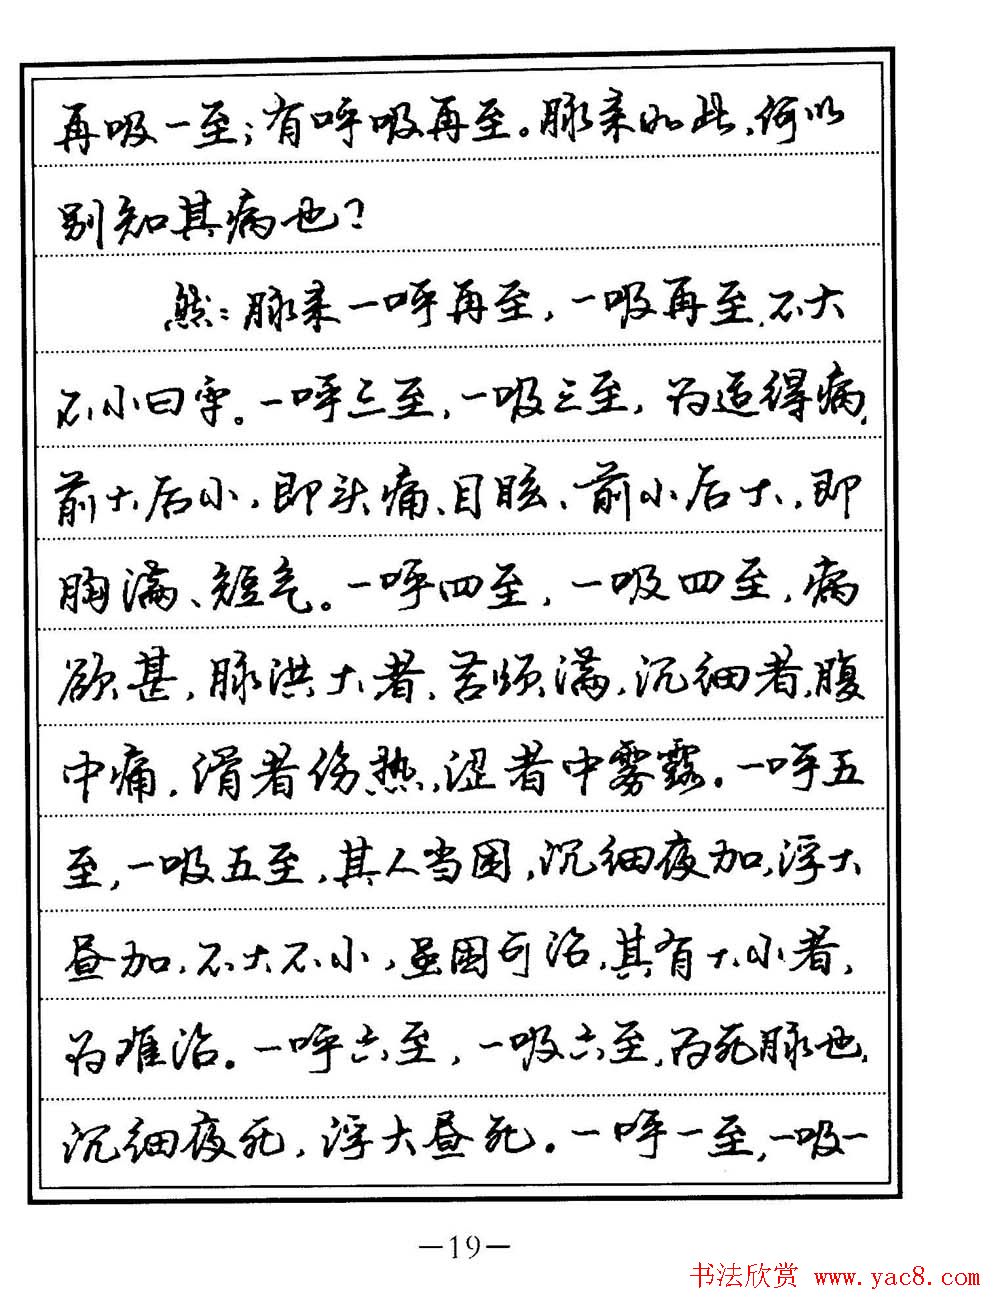 再吸一至；有呼吸再至。脉来如此，何以
别知其病也？
然：脉来一呼再至，一吸再至，不大
不小曰平。一呼三至，一吸三至，为适得病，
前大后小，即头痛、目眩、前小后大，即
胸满、短气。一呼四至，一吸四至，病
欲甚，脉洪大者，苦烦满，沉细者，腹
中痛，滑者伤热，涩者中雾露。一呼五
至，一吸五至，其人当困，沉细夜加，浮大
昼加，不大不小，虽困可治，其有大小者，
为难治。一呼六至，一吸六至，为死脉也，
沉细夜死，浮大昼死。一呼一至，一吸一
—19—
书法欣赏 www.yac8.com